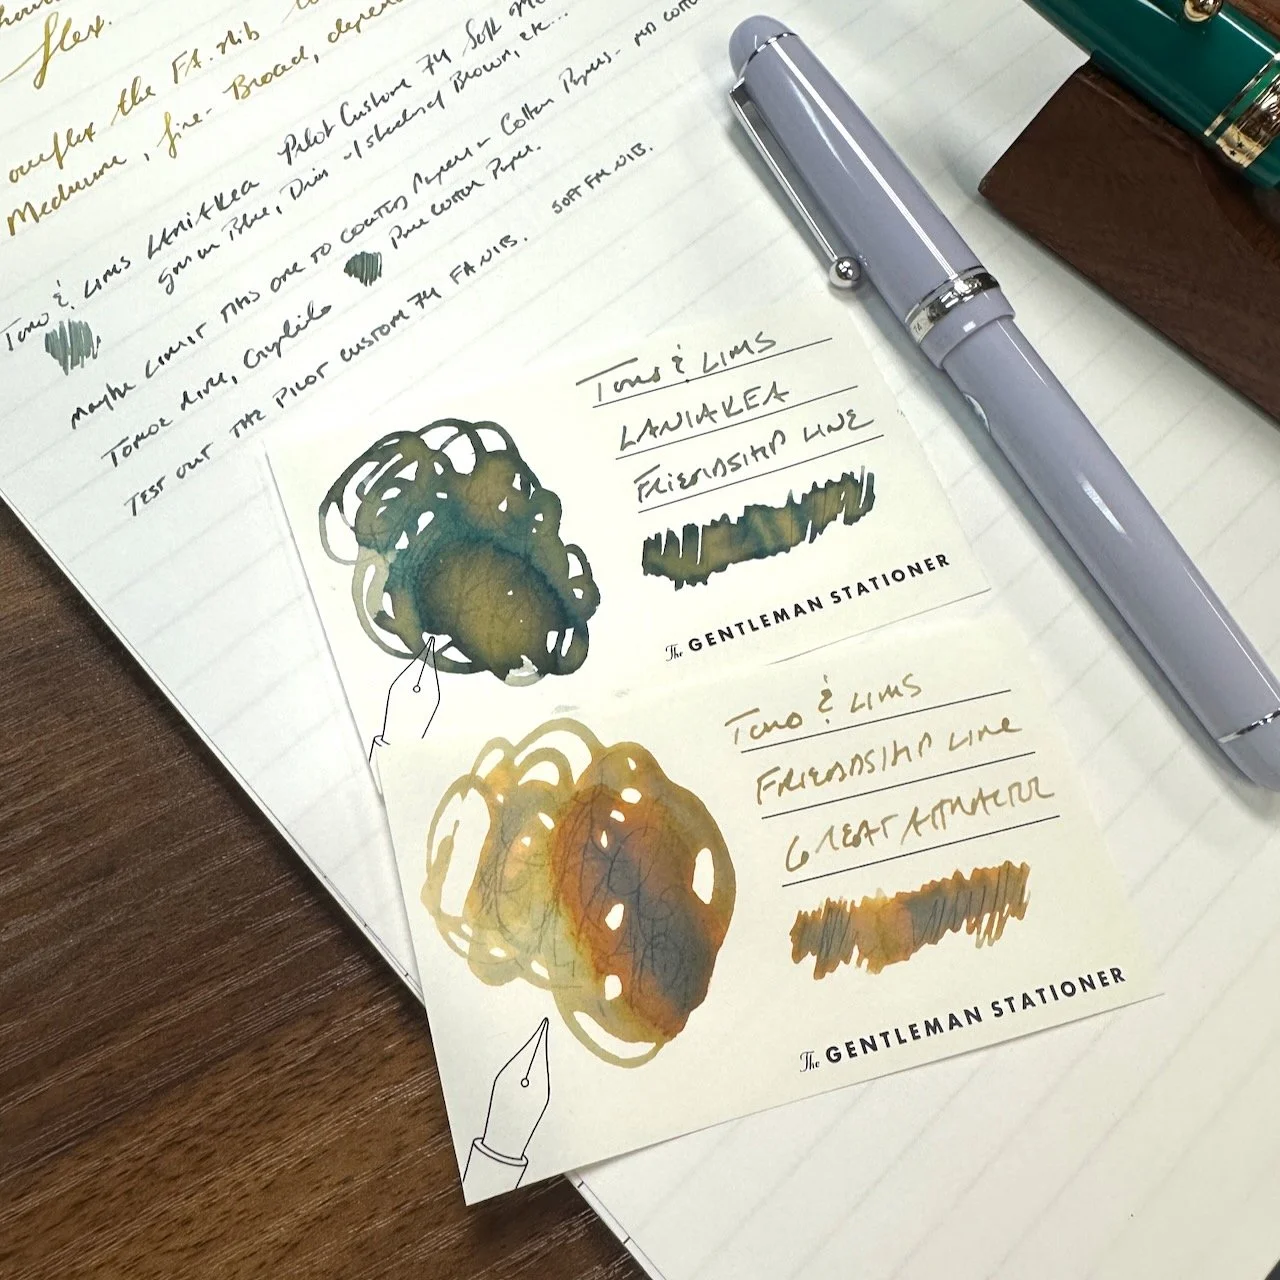 flex.
overflex the FA nib
Medium, fine-Broad,
Tono & Lims LANIAKEA Pilot Custom 74 Soft
Green Blue, Dries w/ shades of Brown, etc...
Maybe LIMIT THIS one TO COATED Papers - Cotton Papers -
Tomoe River, Cosmo Pure Cotton Paper.
TEST OUT THE PILOT CUSTOM 74 FA NIB. SOFT FM NIB.
Tono & LIMS
LANIAKEA
FRIENDSHIP LINE
The GENTLEMAN STATIONER
Tono & LIMS
FRIENDSHIP LINE
GREAT ATTRACTOR
The GENTLEMAN STATIONER